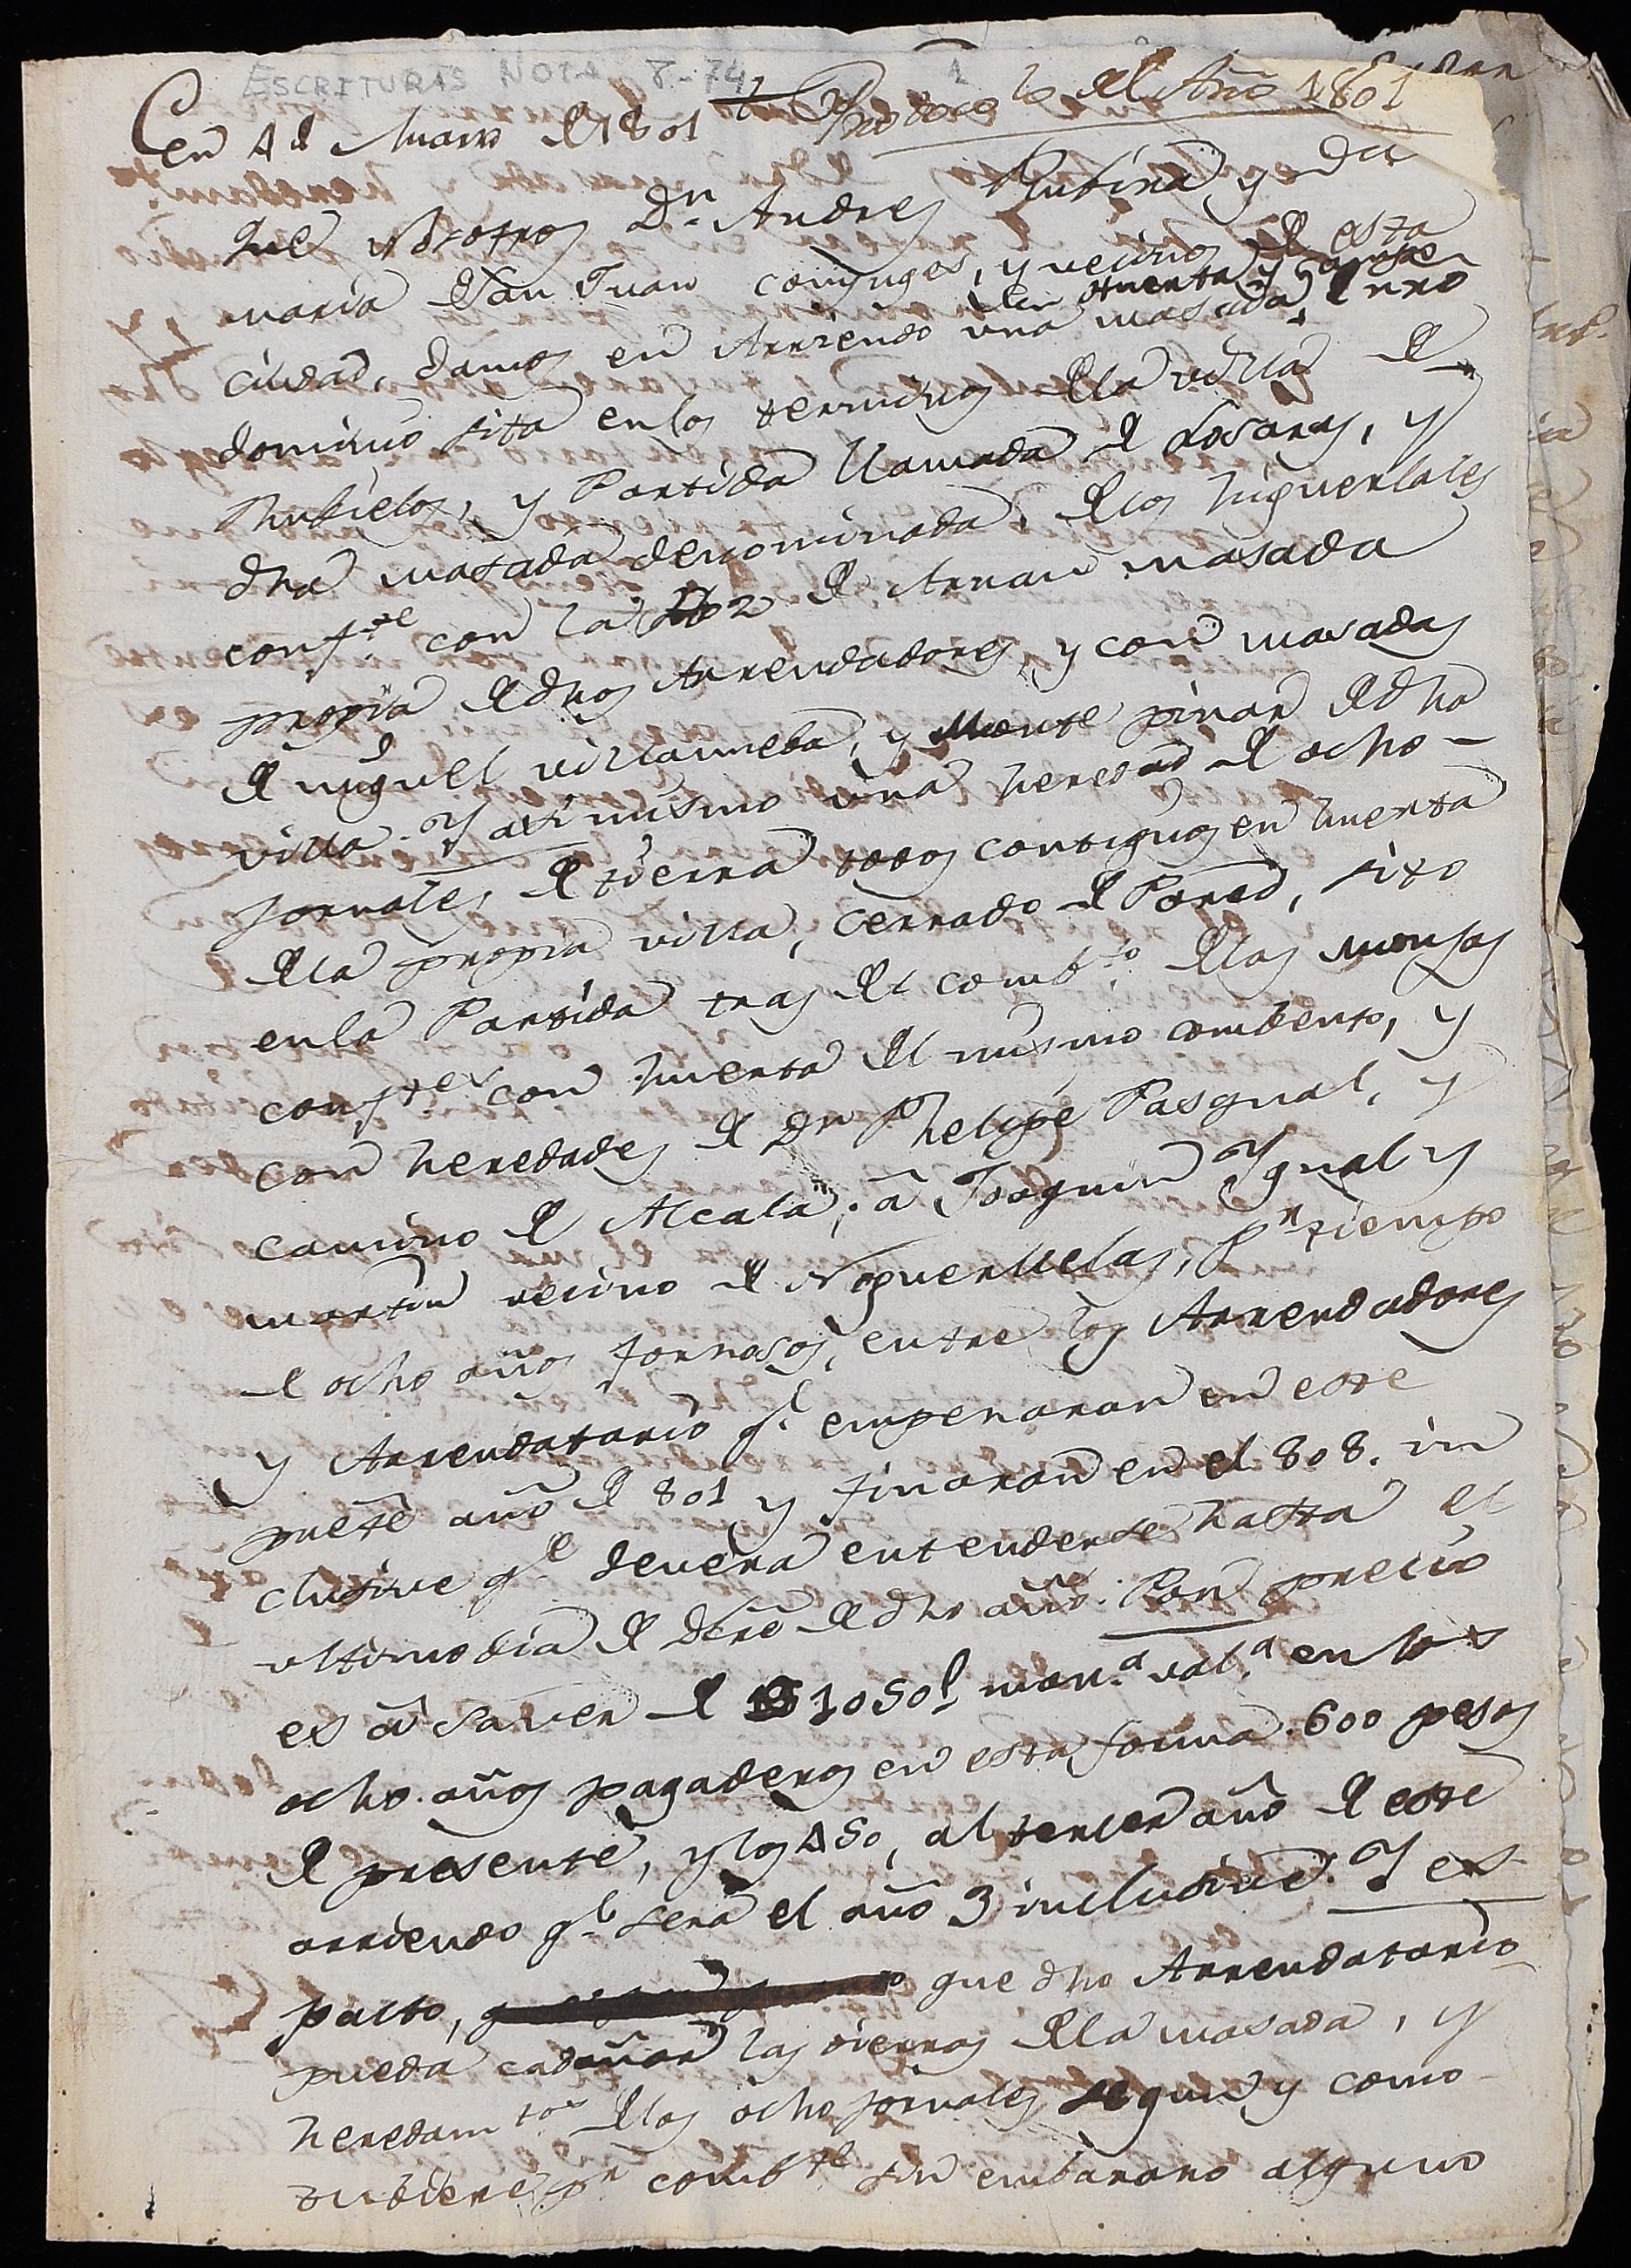 ESCRITURAS NOTA 8-74 1
en 4 de Marzo de 1801 Protocolo del Año 1801
que Nosotros Dn Andres Rubira y Da
maria San Juan conjuges, y vecinos de esta
con Huerta y
ciudad, damos en Arriendo una masada, de nro
dominio sita en los terminos de la villa de
Rubielos, y Partida llamada de Losaras, y
dha masada denominada, de los higuerlales
confte con la de Arnau masada
propia de dhos Arrendadores, y con masadas
de miguel villanueba, y Monte pinar de dha
villa. Y asi mismo una heredad de ocho
Jornales de tierra todos contiguos en huerta
de la propia villa, cerrado de Pared, sito
en la Partida tras del combto de las monjas
conftes con huerta del mismo combento, y
con heredades de Dn Phelipe Pasqual, y
camino de Alcala; a Joaquin Ygual y
martin vecino de Nogueruelas, Pr tiempo
de ocho años forzosos, entre los Arrendadores
y Arrendatario qe empezaran en este
preste año de 801 y finaran en el 808. in
clusive qe devera entenderse hasta el
ultimo dia de Dbre de dho año. Por precio
es a saver de 1050 l mona vala en los
ocho años pagaderos en esta forma. 600 pesos
de presente, y los 450, al tercer año de este
arriendo qe sera el año 3 inclusive. Y es
pacto, que dho Arrendatario
pueda cadañar las tierras de la masada, y
heredamtos de los ocho jornales segun y como
tubiere pr combte sin embarazo alguno